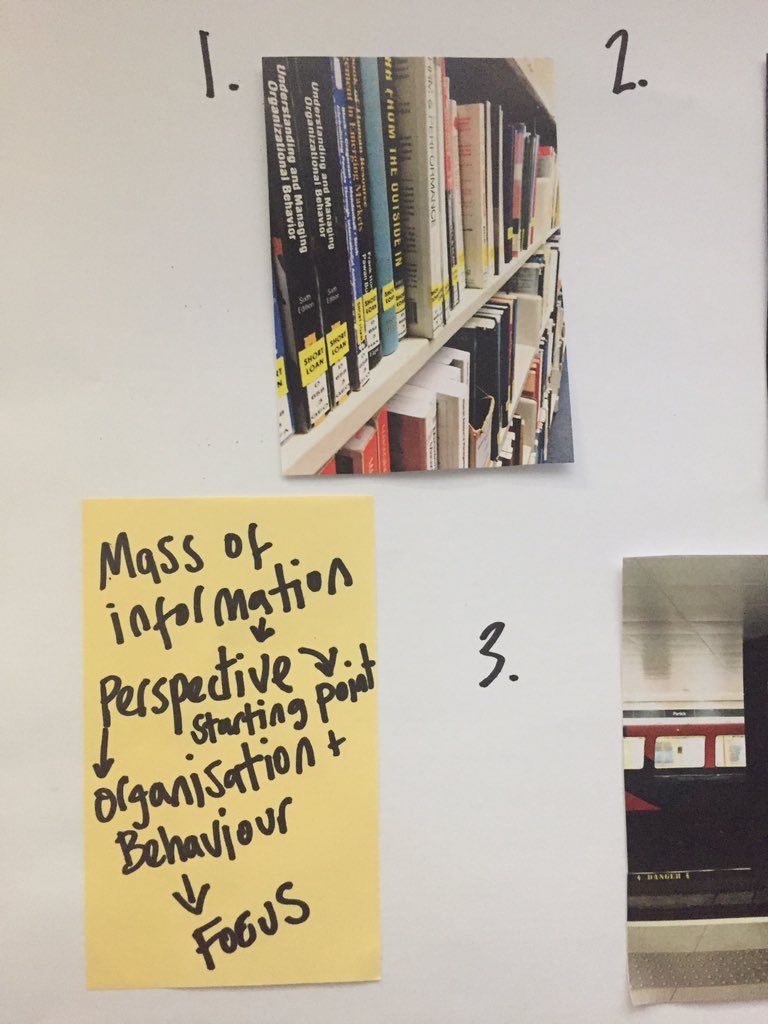 1.
2.
Understanding and Managing
Organizational Behavior
Sixth
Edition
SHORT
LOAN
Understanding and Managing
Organizational Behavior
Sixth
Edition
SHORT
LOAN
SHORT
LOAN
FROM THE OUTSIDE IN
& PERFORMANCE
Mass of
information
Perspective
starting point
organisation +
Behaviour
Focus
3.
Partick
DANGER